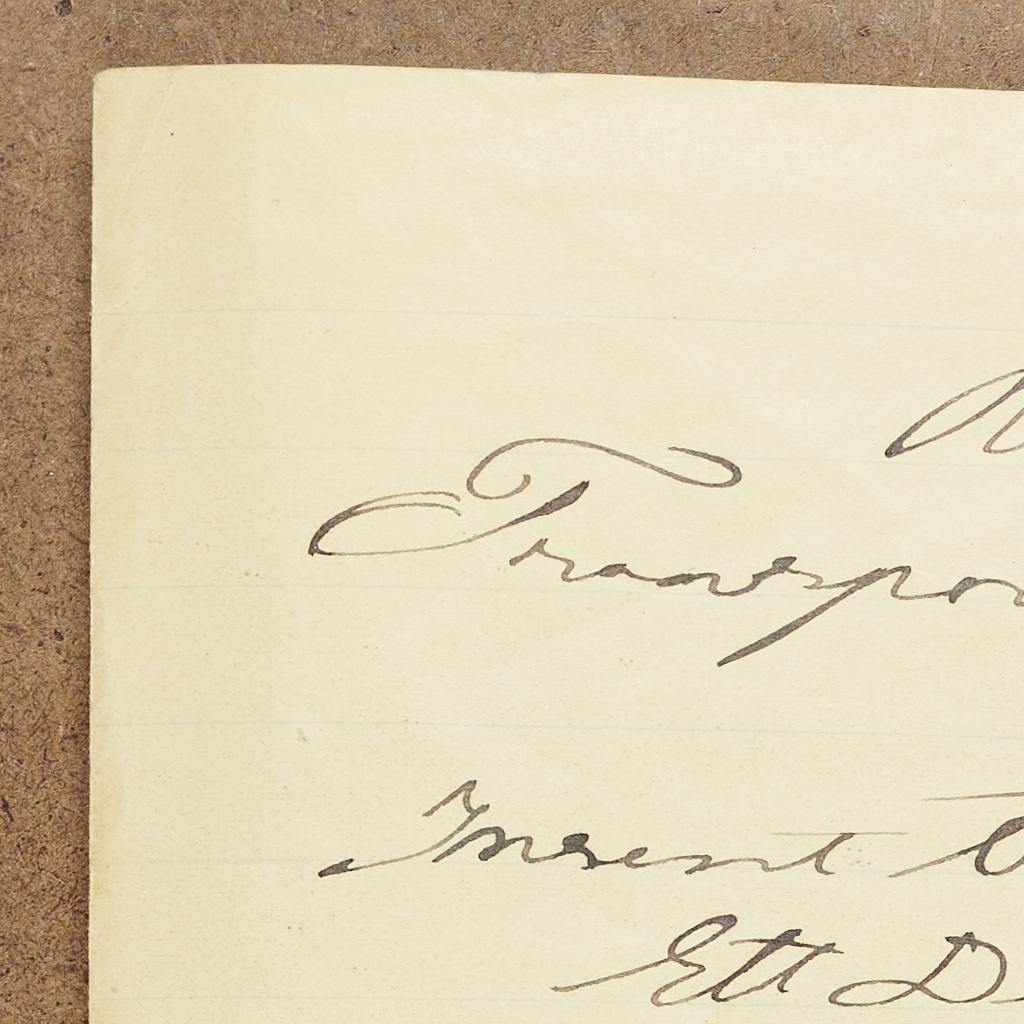 Transpor
Insent t
Ett D